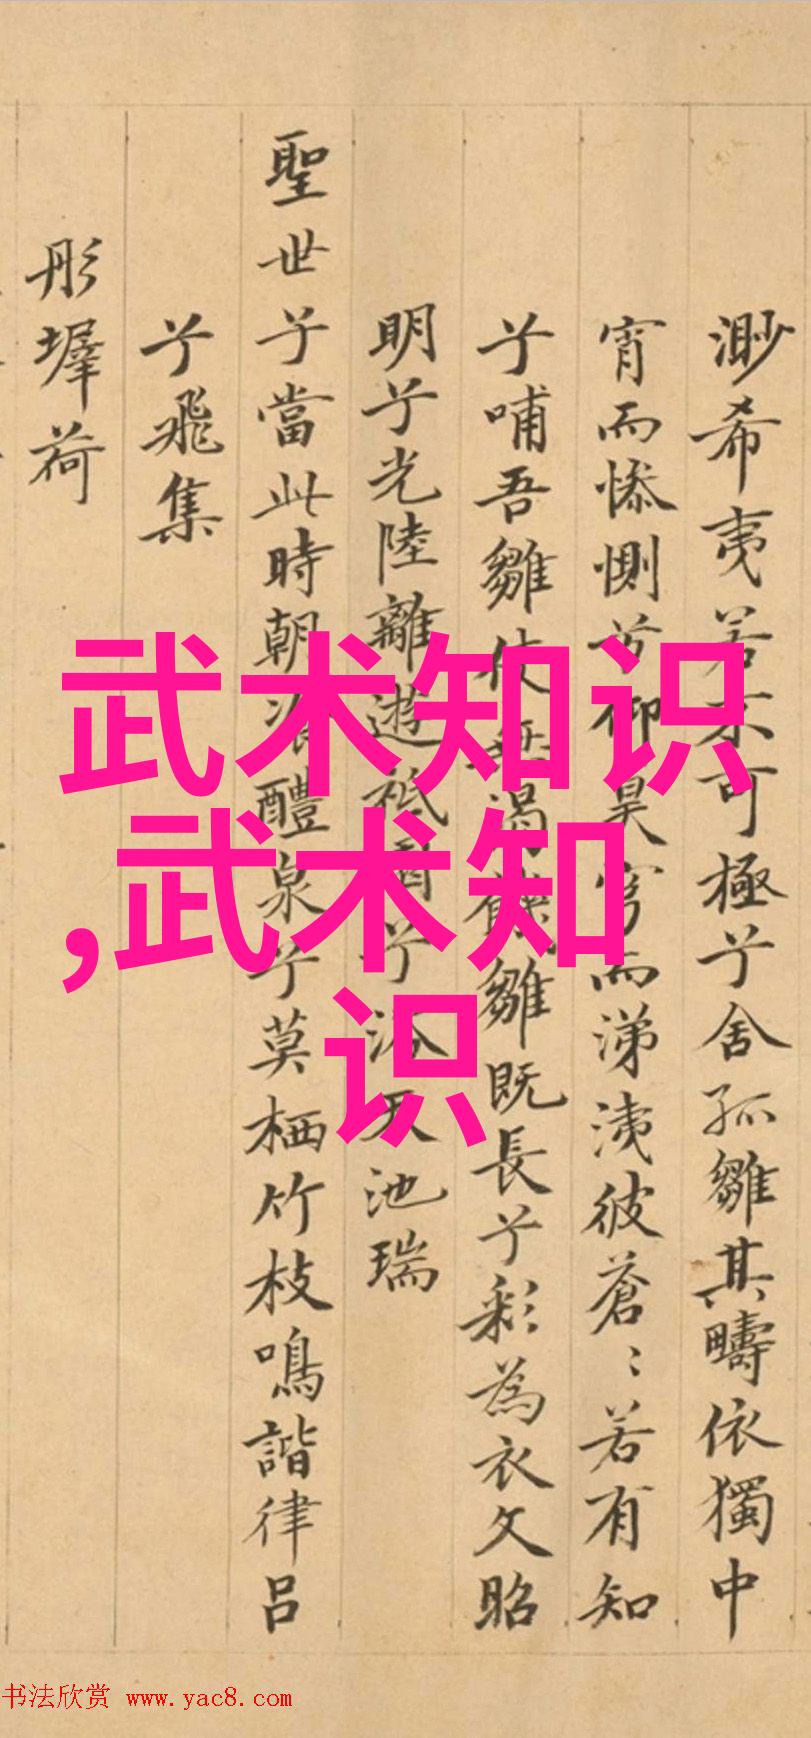 渺希夷若不可極兮舍孤雛其疇依獨中
宵而慘惻兮仰昊穹而涕洟彼蒼〻若有知
兮哺吾雛使無渴飢雛既長兮彩為衣文昭
明兮光陸離遊祗囿兮浴天池瑞
聖世兮當此時朝飡醴泉兮莫栖竹枝鳴諧律呂
兮飛集
彤墀荷
武术知识
,武术知
识
书法欣赏 www.yac8.com